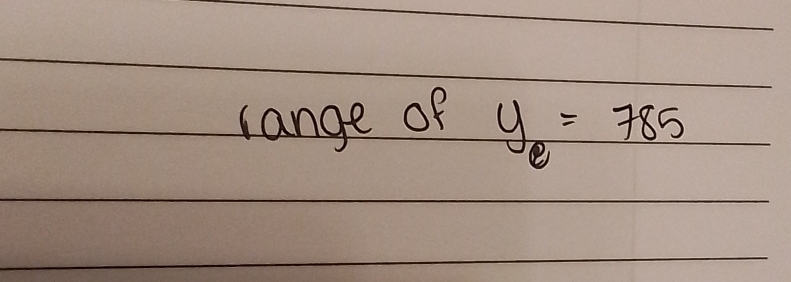 range of yₑ = 785